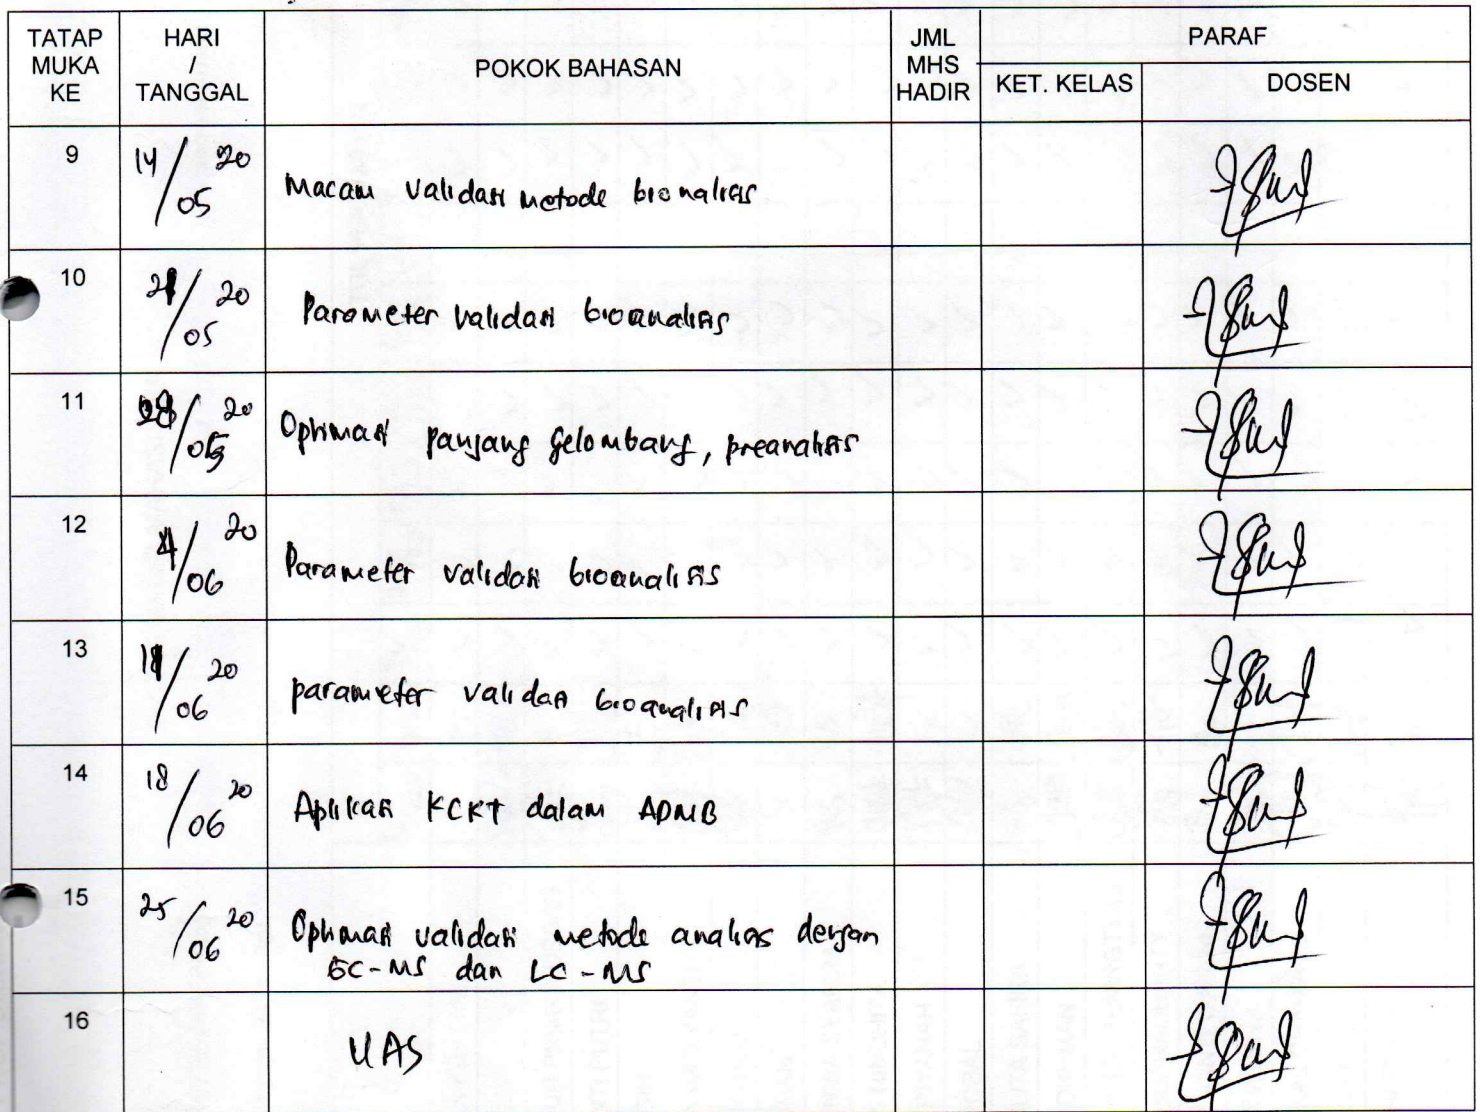 TATAP MUKA KE | HARI / TANGGAL | POKOK BAHASAN | JML MHS HADIR | PARAF
KET. KELAS | DOSEN
9 | 14/05 20 | Macam validasi metode bionalisis
10 | 21/05 20 | Parameter validasi bioanalisis
11 | 28/05 20 | Optimasi panjang gelombang, preanalisis
12 | 4/06 20 | Parameter validasi bioanalisis
13 | 11/06 20 | parameter validasi bioanalisis
14 | 18/06 20 | Aplikasi KCKT dalam ADMB
15 | 25/06 20 | Optimasi validasi metode analisis dengan
GC-MS dan LC-MS
16 | UAS